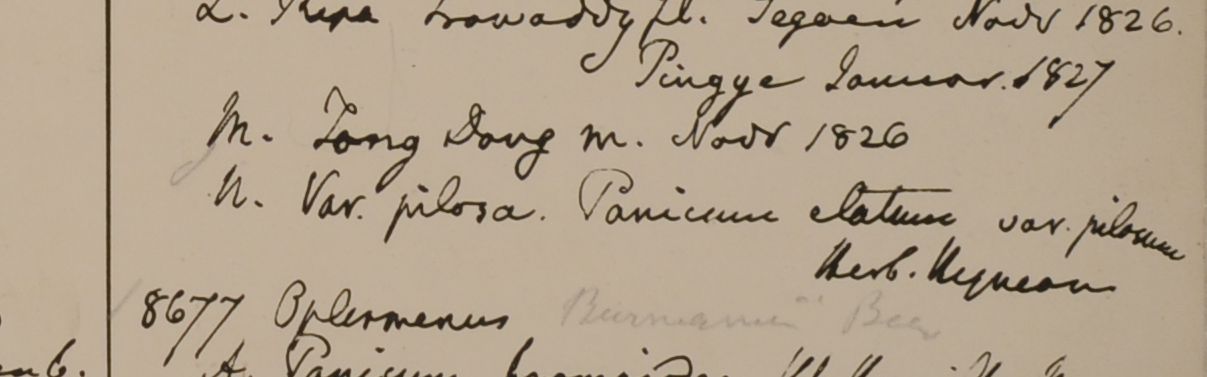 L. Ripa Irawaddy fl. Segaen Novr 1826.
Pingye Januar. 1827
M. Tong Dong m. Novr 1826
N. Var. pilosa. Panicum elatum var. pilosum
Herb. Heynean
8677 Oplismenus Burmanni Beau
A. Panicum